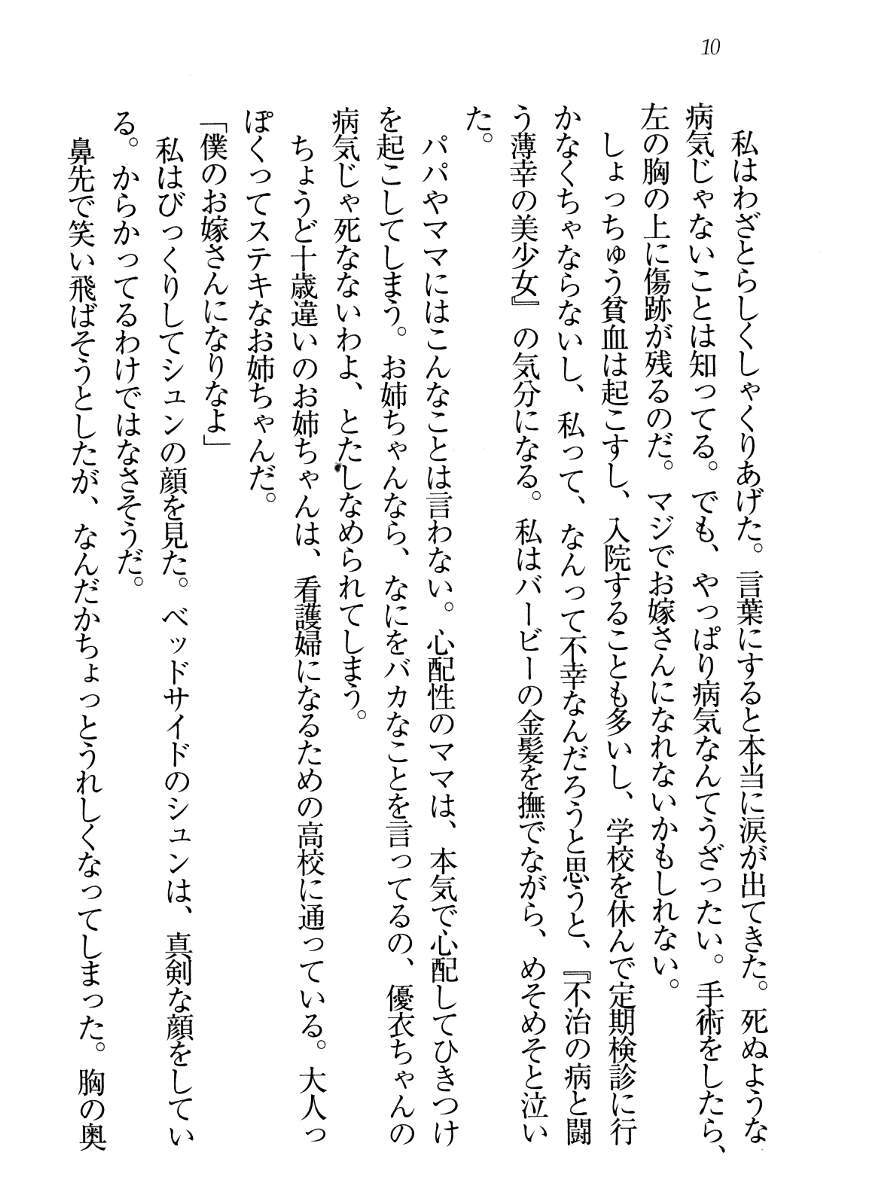 10
私はわざとらしくしゃくりあげた。言葉にすると本当に涙が出てきた。死ぬような
病気じゃないことは知ってる。でも、やっぱり病気なんてうざったい。手術をしたら、
左の胸の上に傷跡が残るのだ。マジでお嫁さんになれないかもしれない。
しょっちゅう貧血は起こすし、入院することも多いし、学校を休んで定期検診に行
かなくちゃならないし、私って、なんって不幸なんだろうと思うと、『不治の病と闘
う薄幸の美少女』の気分になる。私はバービーの金髪を撫でながら、めそめそと泣い
た。
パパやママにはこんなことは言わない。心配性のママは、本気で心配してひきつけ
を起こしてしまう。お姉ちゃんなら、なにをバカなことを言ってるの、優衣ちゃんの
病気じゃ死なないわよ、とたしなめられてしまう。
ちょうど十歳違いのお姉ちゃんは、看護婦になるための高校に通っている。大人っ
ぽくってステキなお姉ちゃんだ。
「僕のお嫁さんになりなよ」
私はびっくりしてシュンの顔を見た。ベッドサイドのシュンは、真剣な顔をしてい
る。からかってるわけではなさそうだ。
鼻先で笑い飛ばそうとしたが、なんだかちょっとうれしくなってしまった。胸の奥